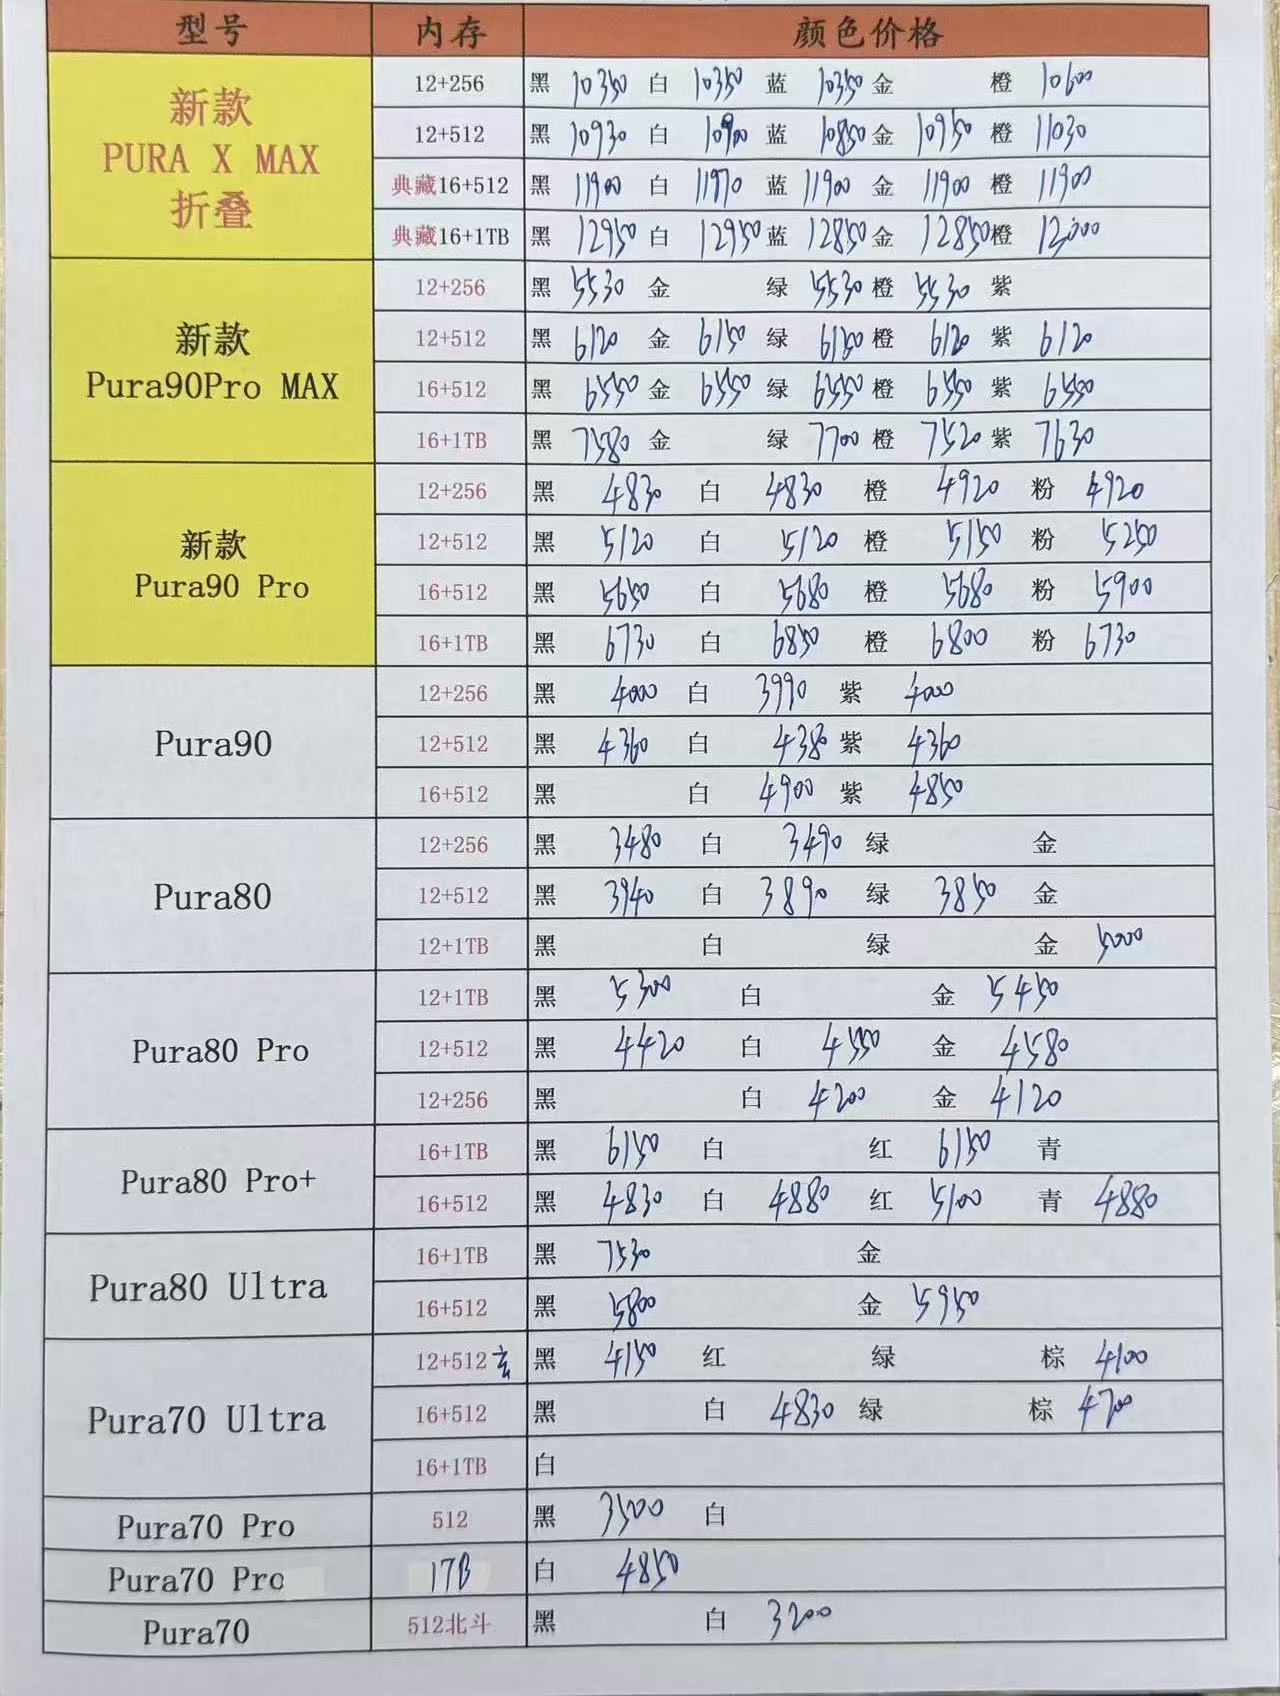 型号 内存 颜色价格
新款 PURA X MAX 折叠
12+256 黑 10350 白 10350 蓝 10350 金 橙 10600
12+512 黑 10930 白 10900 蓝 10850 金 10950 橙 11030
典藏16+512 黑 11900 白 11970 蓝 11900 金 11900 橙 11900
典藏16+1TB 黑 12950 白 12950 蓝 12850 金 12850 橙 12000
新款 Pura90Pro MAX
12+256 黑 5530 金 绿 5530 橙 5530 紫
12+512 黑 6120 金 6150 绿 6150 橙 6120 紫 6120
16+512 黑 6550 金 6550 绿 6550 橙 6550 紫 6550
16+1TB 黑 7580 金 绿 7700 橙 7520 紫 7630
新款 Pura90 Pro
12+256 黑 4830 白 4830 橙 4920 粉 4920
12+512 黑 5120 白 5120 橙 5150 粉 5250
16+512 黑 5650 白 5680 橙 5680 粉 5900
16+1TB 黑 6730 白 6850 橙 6800 粉 6730
Pura90
12+256 黑 4000 白 3990 紫 4000
12+512 黑 4360 白 4380 紫 4360
16+512 黑 白 4900 紫 4850
Pura80
12+256 黑 3480 白 3490 绿 金
12+512 黑 3940 白 3890 绿 3850 金
12+1TB 黑 白 绿 金 5000
Pura80 Pro
12+1TB 黑 5300 白 金 5450
12+512 黑 4420 白 4550 金 4580
12+256 黑 白 4200 金 4120
Pura80 Pro+
16+1TB 黑 6150 白 红 6150 青
16+512 黑 4830 白 4880 红 5100 青 4880
Pura80 Ultra
16+1TB 黑 7530 金
16+512 黑 5800 金 5950
Pura70 Ultra
12+512玄 黑 4150 红 绿 棕 4100
16+512 黑 白 4830 绿 棕 4700
16+1TB 白
Pura70 Pro 512 黑 3500 白
Pura70 Pro 1TB 白 4850
Pura70 512北斗 黑 白 3200